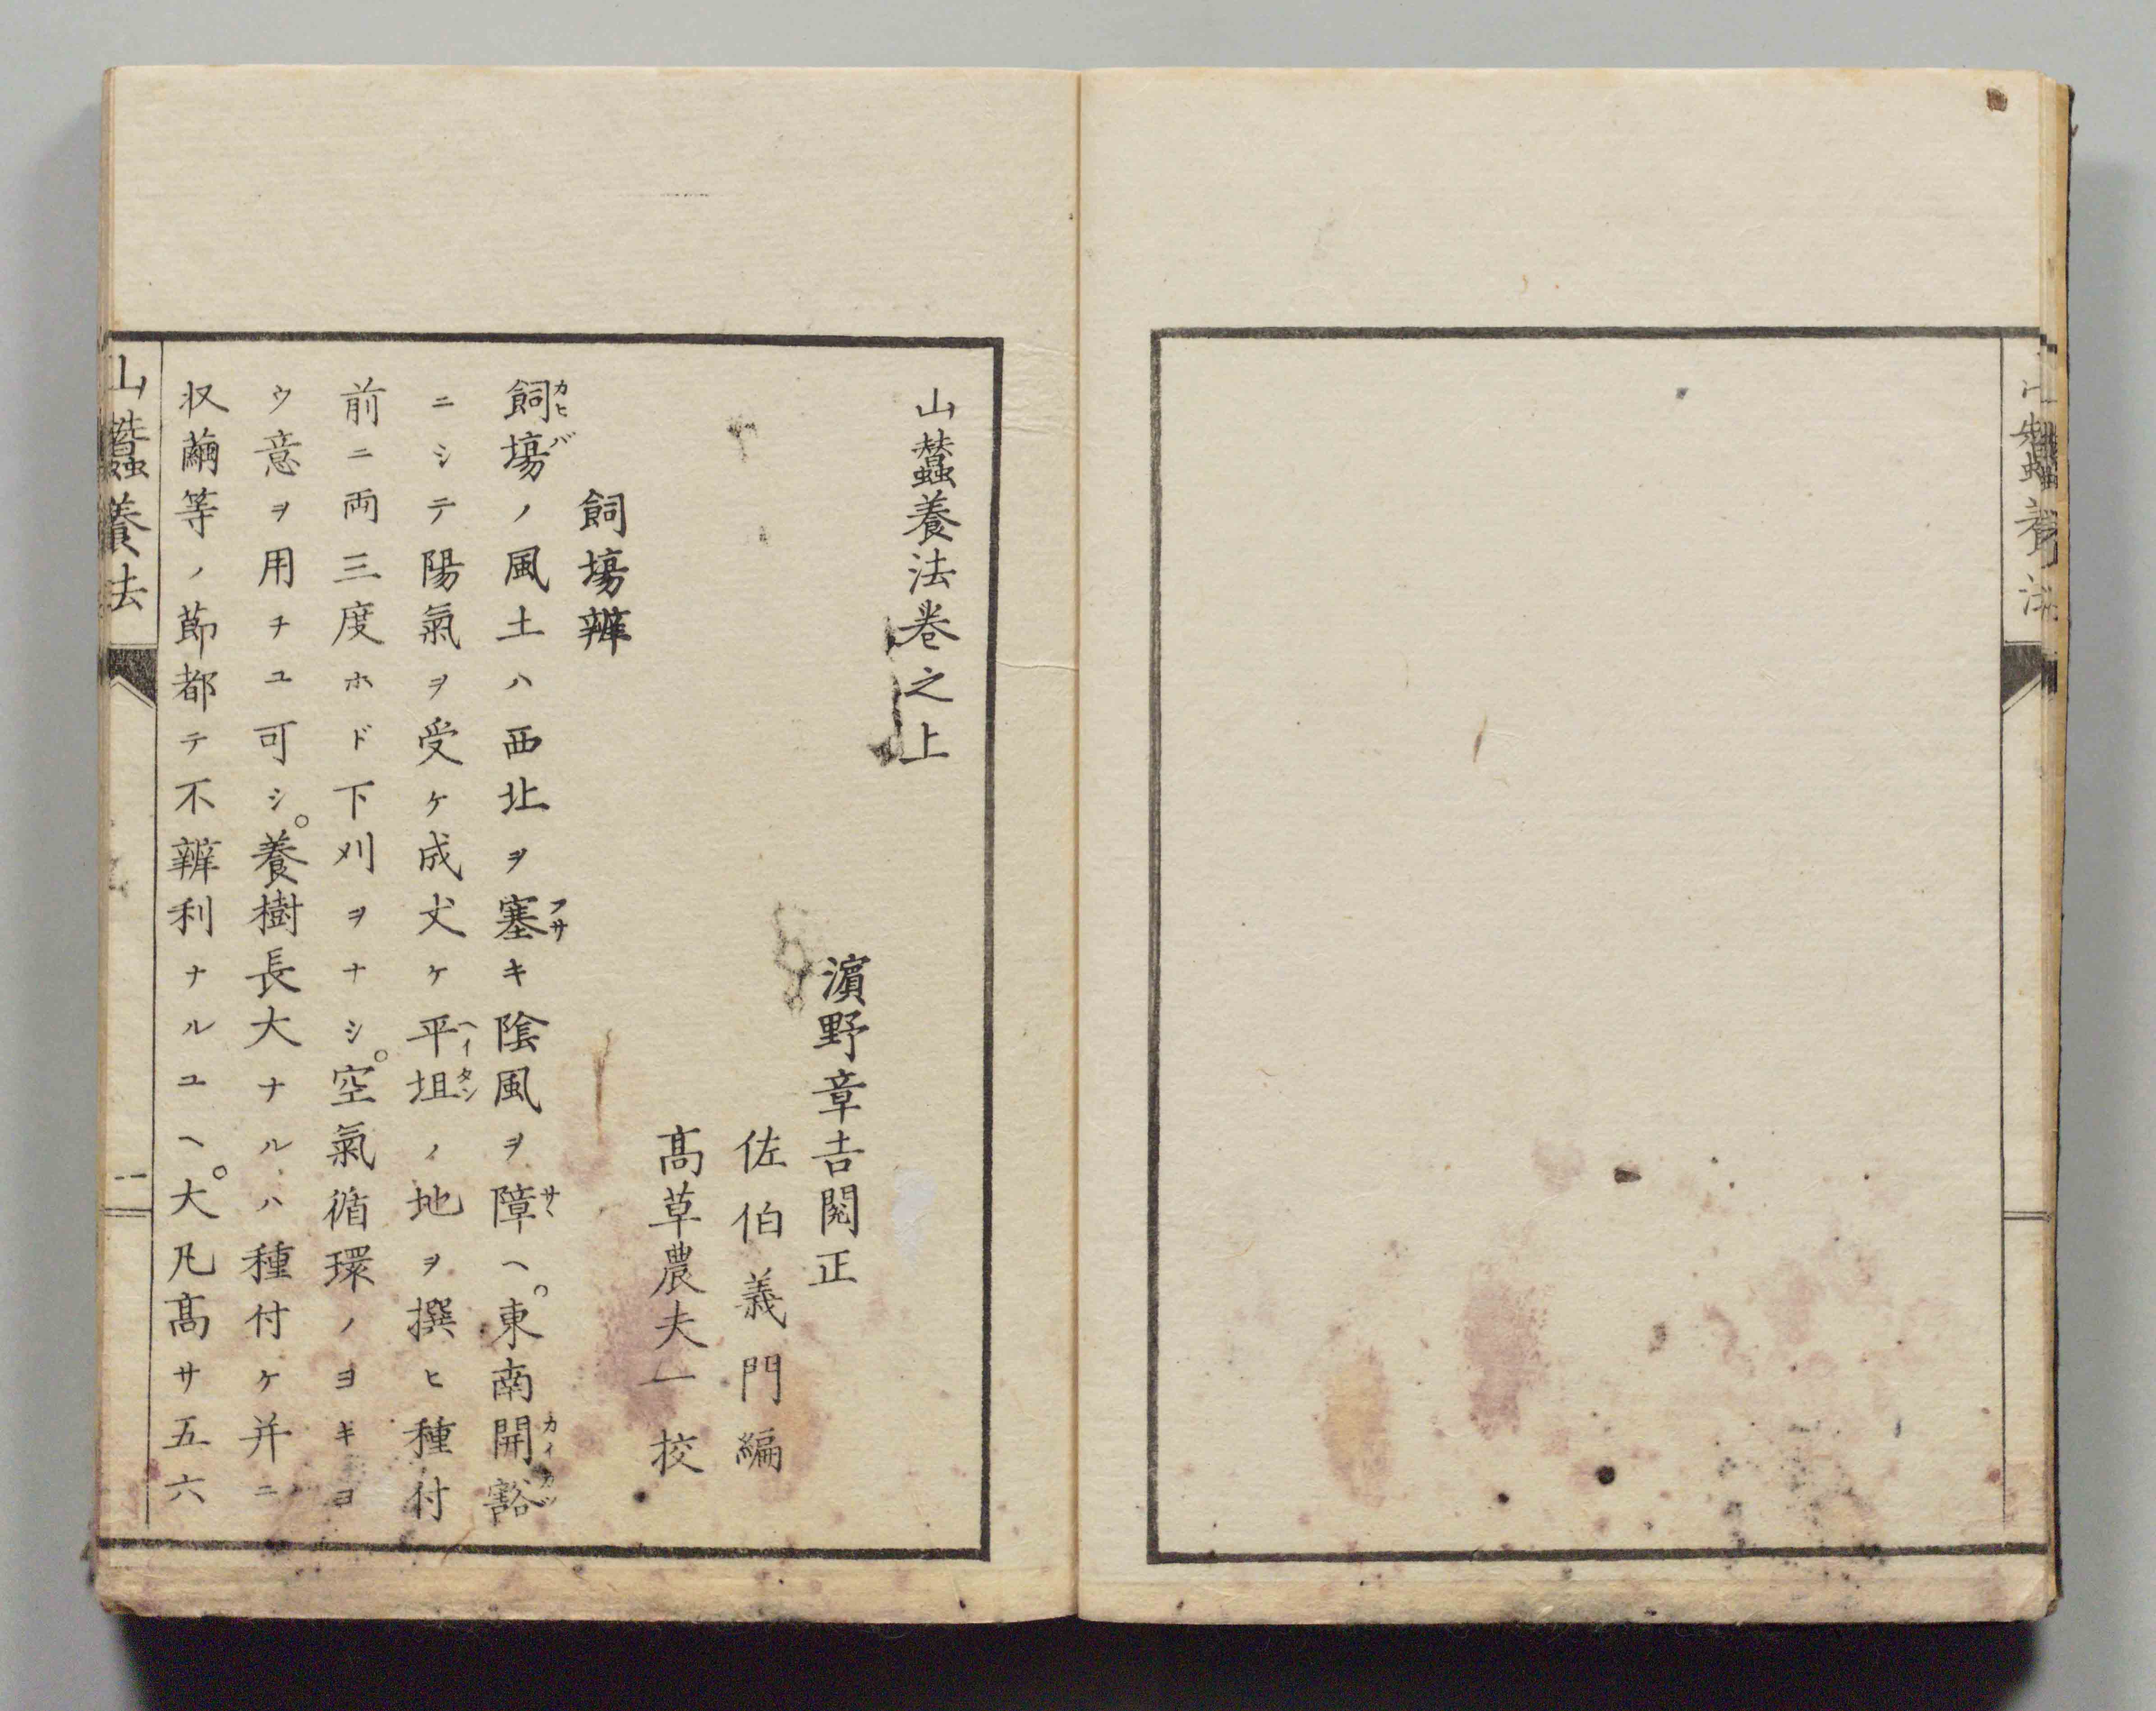 山蠶養法
山蠶養法卷之上
濱野章吉閱正
佐伯義門編
髙草農夫一校
飼塲辨
飼塲ノ風土ハ西北ヲ塞キ陰風ヲ障ヘ。東南開豁
カヒバ フサ サヽ カイカツ
ニシテ陽氣ヲ受ケ成丈ケ平坦ノ地ヲ撰ヒ種付
ヘイタン
前ニ両三度ホド下刈ヲナシ。空氣循環ノヨキヨ
ウ意ヲ用チユ可シ。養樹長大ナルハ種付ケ并ニ
収繭等ノ節都テ不辨利ナルユヘ。大凡髙サ五六
山蠶養法
一